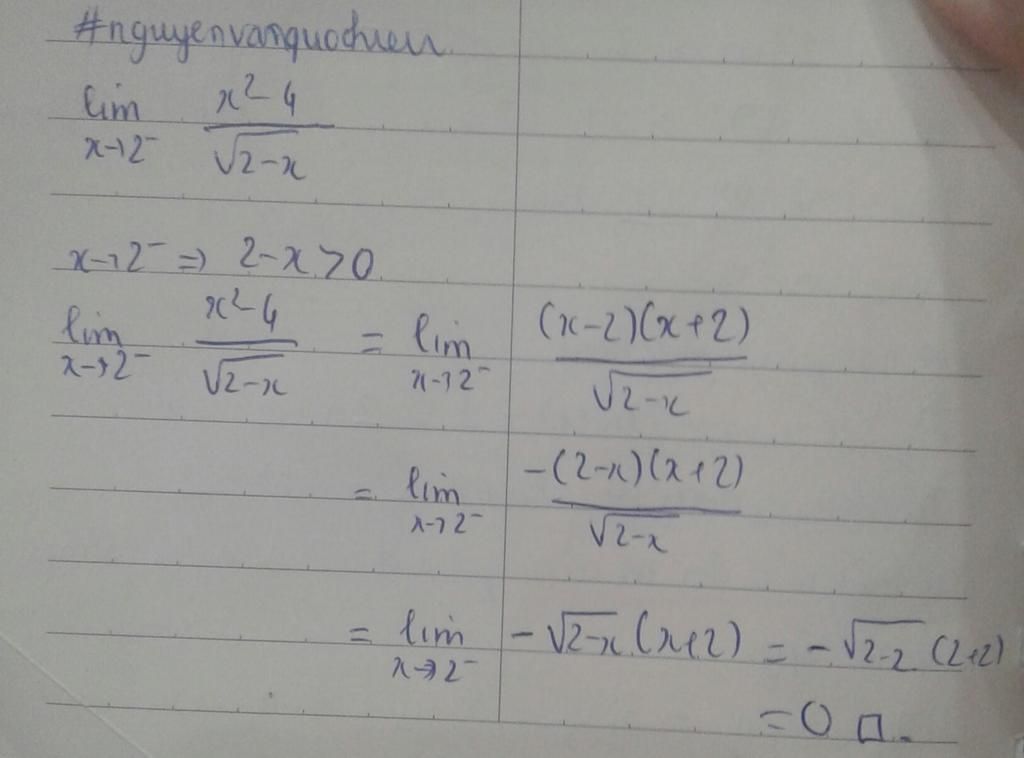 #nguyenvanquochieu
lim x→2⁻ (x²-4)/√(2-x)
x→2⁻ ⇒ 2-x>0
lim x→2⁻ (x²-4)/√(2-x) = lim x→2⁻ (x-2)(x+2)/√(2-x)
= lim x→2⁻ -(2-x)(x+2)/√(2-x)
= lim x→2⁻ -√(2-x)(x+2) = -√(2-2)(2+2)
=0 □.